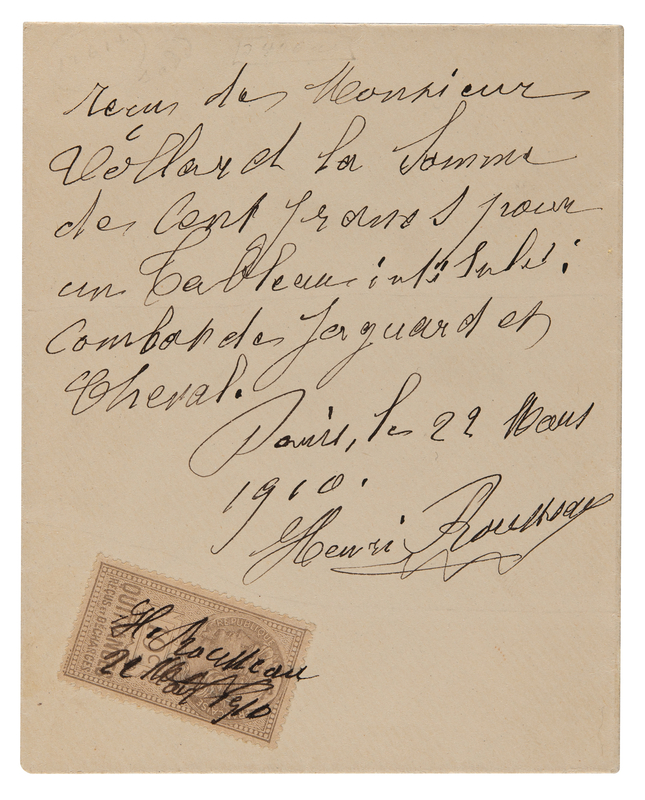 recus de Monsieur
Vollard la Somme
de Cent francs pour
un Tableau intitulé :
Combat de Jaguard et
Cheval.
Paris, le 22 Mars
1910.
Henri Rousseau
RÉPUBLIQUE
QUITTANCES
REÇUS ET DÉCHARGES
H. Rousseau
22 Mars 1910